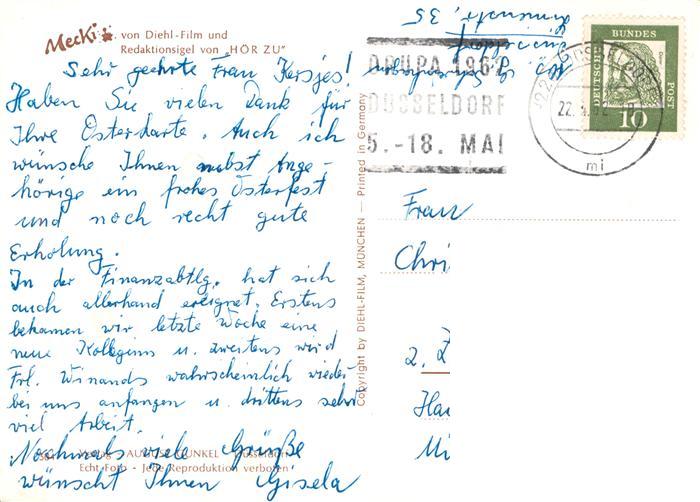 Mecki von Diehl-Film und
Redaktionsigel von "HÖR ZU"
Sehr geehrte Frau Kersjes!
Haben Sie vielen Dank für
Ihre Osterkarte. Auch ich
wünsche Ihnen nebst Ange-
hörige ein frohes Osterfest
und noch recht gute
Erholung.
In der Finanzabtlg. hat sich
auch allerhand ereignet. Erstens
bekamen wir letzte Woche eine
neue Kollegin u. zweitens wird
Frl. Winands wahrscheinlich wieder
bei uns anfangen u. drittens sehr
viel Arbeit.
Nochmals viele Grüße
wünscht Ihnen Gisela
Verlag AUGUST GUNKEL Düsseldorf
Echt Foto - Jede Reproduktion verboten
Copyright by DIEHL-FILM, MÜNCHEN — Printed in Germany
DRUPA 1962
DÜSSELDORF
5.-18. MAI
DÜSSELDORF
mi
DEUTSCHE BUNDES POST
10
Frau
Chri
2.
Hau
Mi